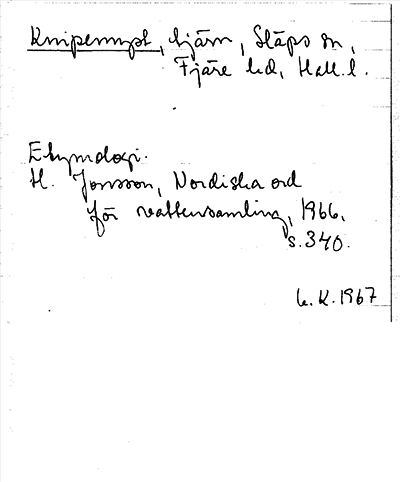 Knipemypt, tjärn, Släps sn,
Fjäre hd, Hall. l.
Etymologi.
H. Jonsson, Nordiska ord
för vattensamling, 1966,
s. 340.
K. 1967